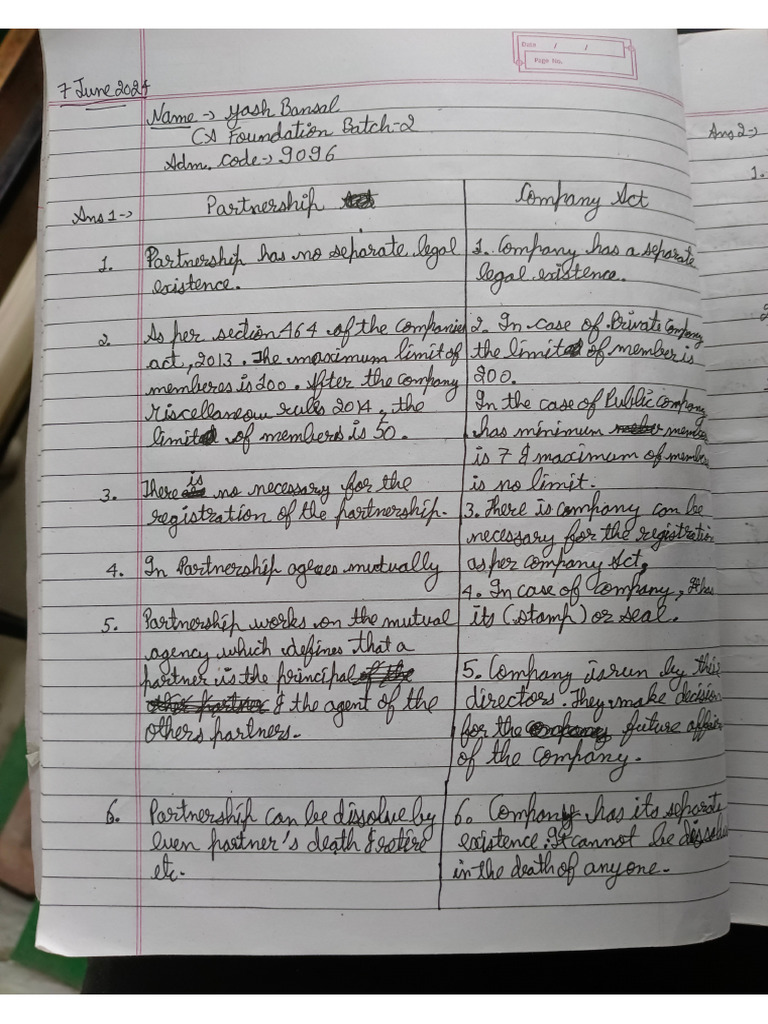 Date / /
Page No.
7 June 2024
Name → Yash Bansal
CA Foundation Batch-2
Adm. Code → 9096
Ans 1→ Partnership
1. Partnership has no separate legal
existence.
2. As per section 464 of the Companies
act, 2013. The maximum limit of
members is 100. After the company
miscellaneous rules 2014, the
limited of members is 50.
3. There is no necessary for the
registration of the partnership.
4. In Partnership agrees mutually
5. Partnership works on the mutual
agency which defines that a
partner is the principal
& the agent of the
others partners.
6. Partnership can be dissolve by
even partner's death & retire
etc.
Company Act
1. Company has a separate
legal existence.
2. In case of Private Company
the limited of member is
200.
In the case of Public company
has minimum
is 7 & maximum of
is no limit.
3. There is company can be
necessary for the registration
as per company Act,
4. In case of Company, It has
its (stamp) or seal.
5. Company is run by this
directors. They make decision
for the future
of the company.
6. Company has its separate
existence. It cannot be
in the death of anyone.
Ans 2→
1.